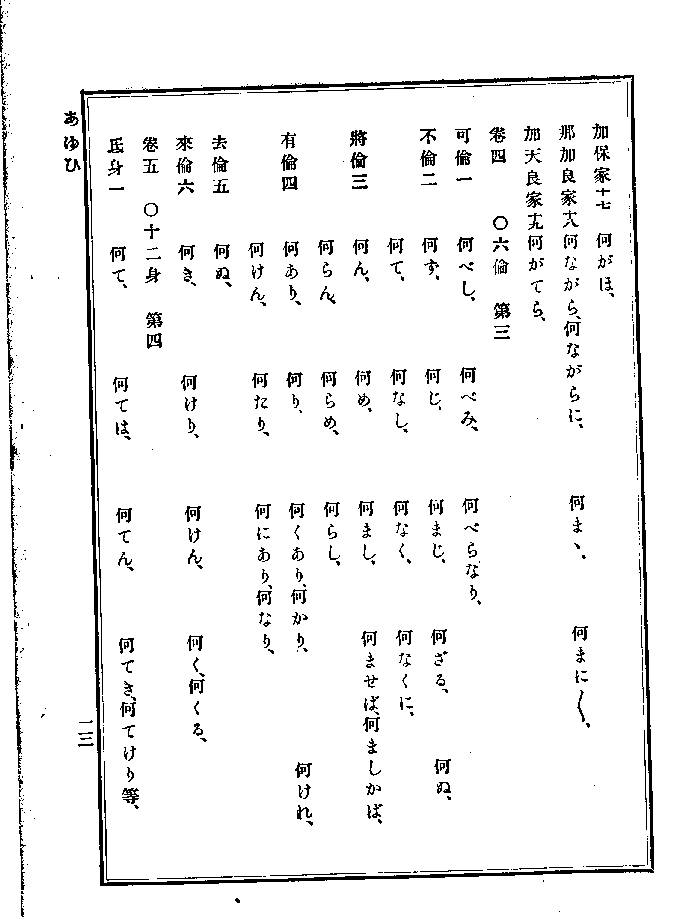 加保家十七　何がほ、
那加良家十八　何ながら、何ながらに、　何まゝ、　何まに〱、
加天良家十九　何がてら、
卷四　〇六倫　第三
可倫一　何べし、　何べみ、　何べらなり、
不倫二　何ず、　何じ、　何まじ、　何ざる、　何ぬ、
何で、　何なし、　何なく、　何なくに、
將倫三　何ん、　何め、　何まし、　何ませば、何ましかば、
何らん、　何らめ、　何らし、
有倫四　何あり、　何り、　何くあり、何かり、　何けれ、
何けん、　何たり、　何にあり、何なり、
去倫五　何ぬ、
來倫六　何き、　何けり、　何けん、　何く、何くる、
卷五　〇十二身　第四
氐身一　何て、　何ては、　何てん、　何てき、何てけり等、
あゆひ
二三